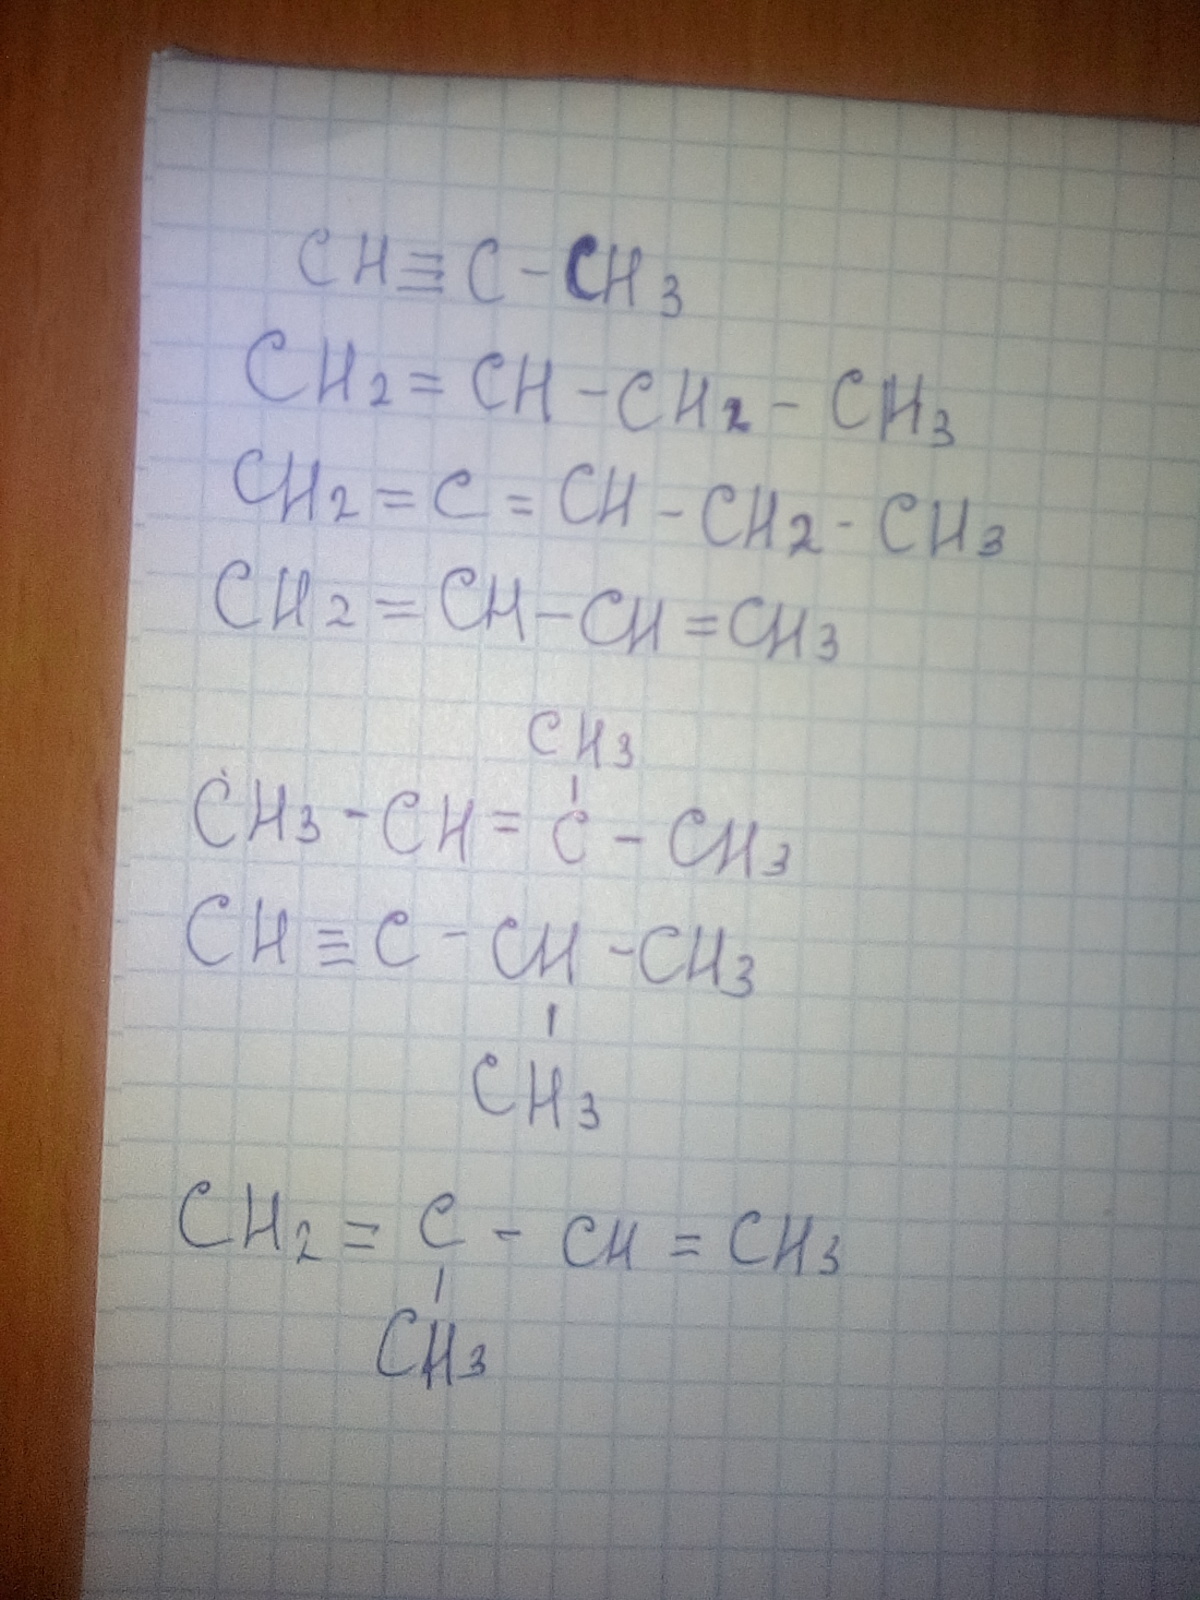 CH≡C-CH3
CH2=CH-CH2-CH3
CH2=C=CH-CH2-CH3
CH2=CH-CH=CH3
CH3
CH3-CH=C-CH3
CH≡C-CH-CH3
CH3
CH2=C-CH=CH3
CH3